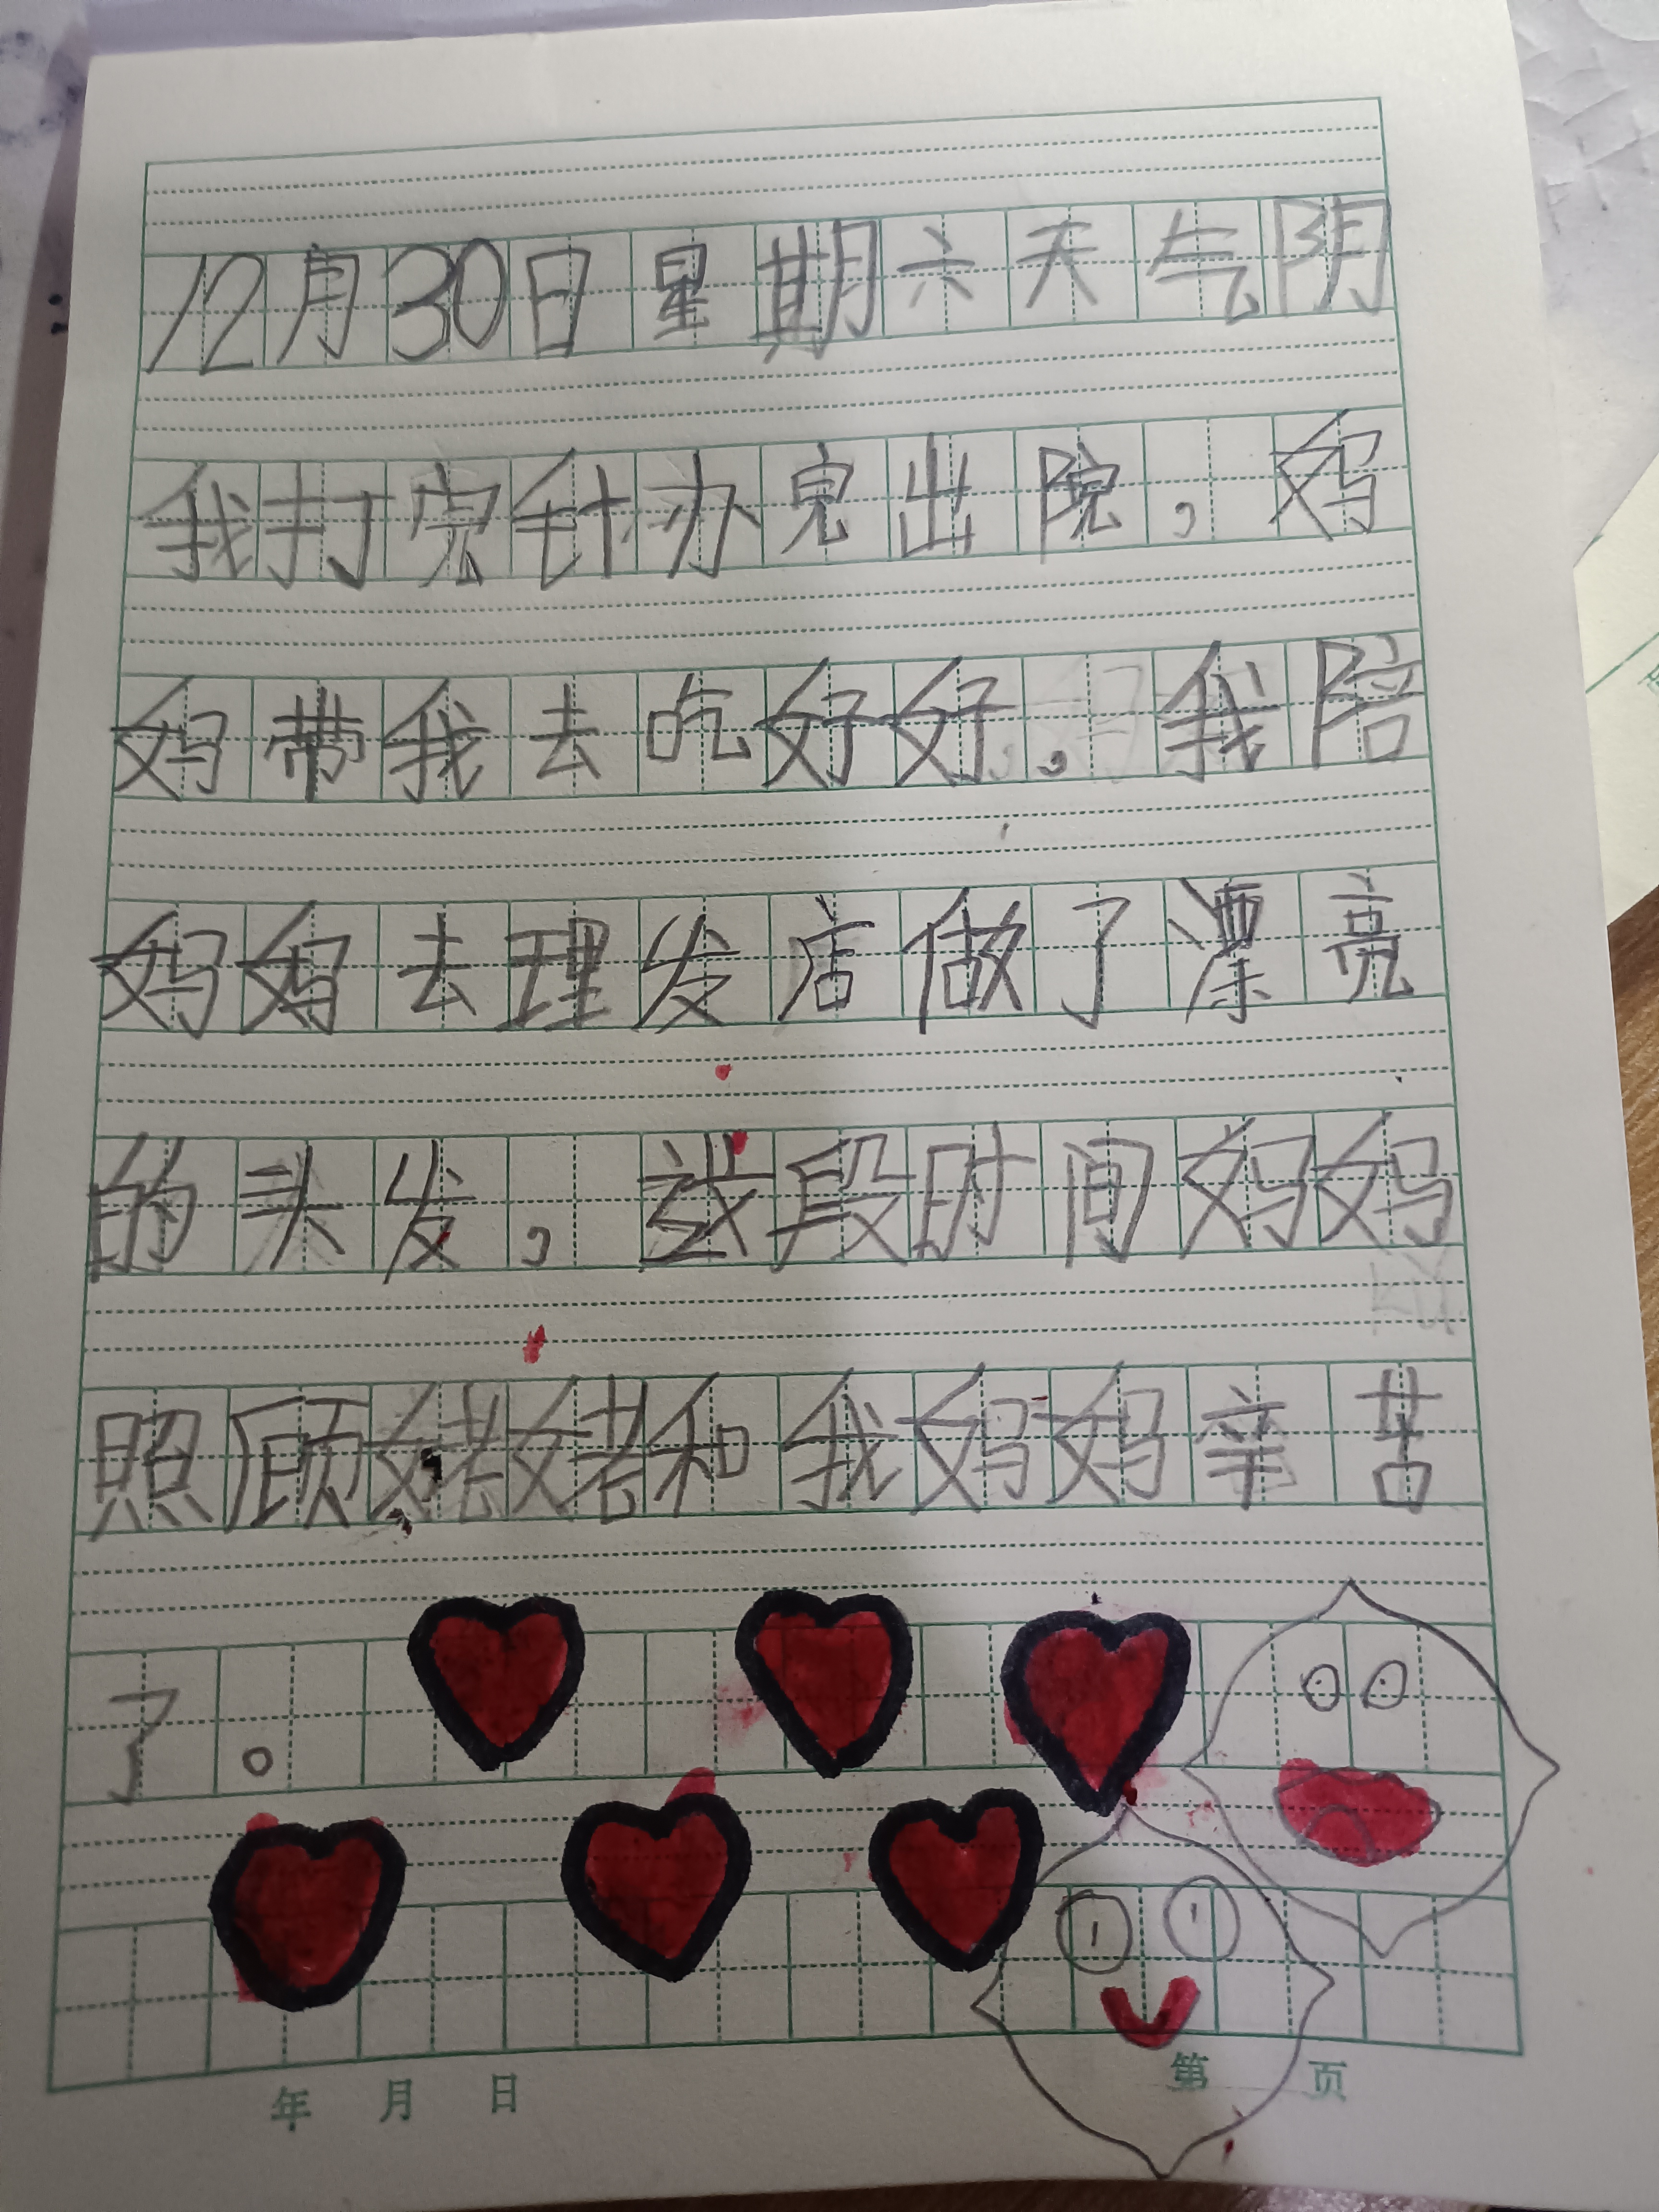 12月30日星期六天气阴
我打完针办完出院，妈
妈带我去吃好好，我陪
妈妈去理发店做了漂亮
的头发，这段时间妈妈
照顾姥姥和我妈妈辛苦
了。
年 月 日 第 页